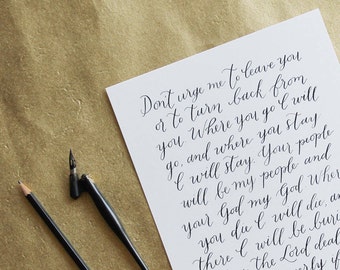 Don't urge me to leave you
or to turn back from
you. Where you go I will
go, and where you stay
I will stay. Your people
will be my people and
your God my God. Where
you die I will die, and
there I will be buri
the Lord deal